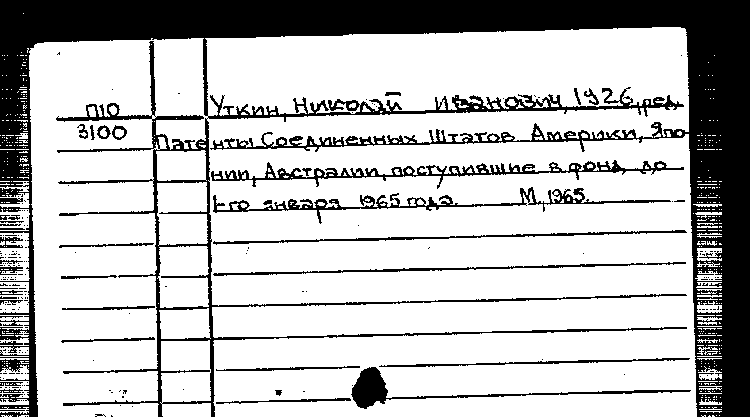 П10 Уткин, Николай Иванович, 1926, ред.
3100 Патенты Соединенных Штатов Америки, Япо-
нии, Австралии, поступившие в фонд до
1-го января 1965 года. М., 1965.